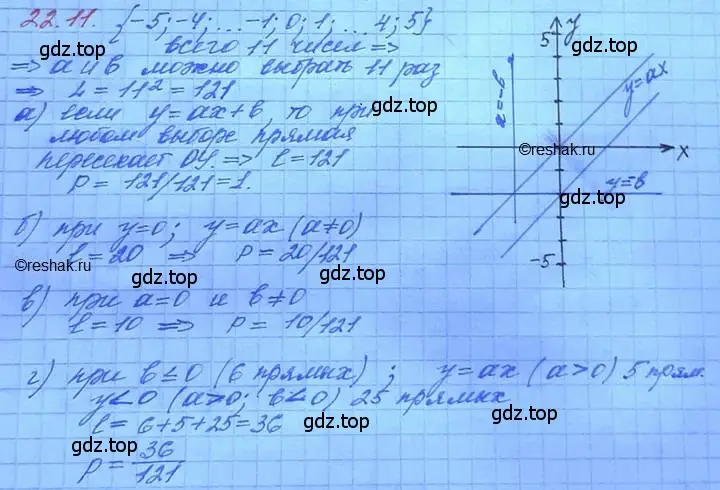 22.11. {-5; -4; ... -1; 0; 1; ... 4; 5}
всего 11 чисел ⇒
⇒ a и b можно выбрать 11 раз
⇒ n = 11² = 121
а) если y = ax + b, то при
любом выборе прямая
пересекает OY. ⇒ l = 121
P = 121/121 = 1.
б) при y=0; y = ax (a≠0)
l = 20 ⇒ P = 20/121
в) при a=0 и b≠0
l = 10 ⇒ P = 10/121
г) при b≤0 (6 прямых) ; y = ax (a>0) 5 прям.
y<0 (a>0; b<0) 25 прямых
l = 6+5+25 = 36
P = 36/121
y
5
x=-b
y=ax
x
y=b
-5
gdz.top
gdz.top
gdz.top
gdz.top
gdz.top
gdz.top
gdz.top
gdz.top
©reshak.ru
©reshak.ru